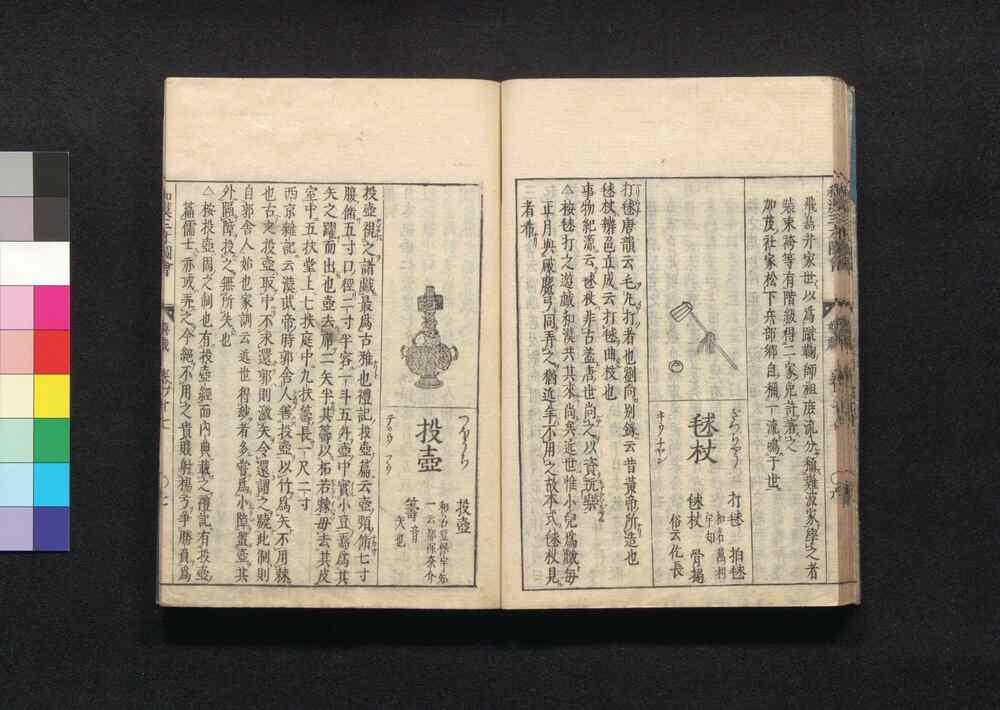 飛鳥井家世以爲蹴鞠師祖庶流分稱難波家學之者
裝束袴等有階級得二家免許著之
加茂社家松下兵部卿自稱一流鳴于世
毬杖
ぎつちやう
キウチヤン
打毬
拍毬
毬杖
骨撾
俗云
打毬唐韻云毛丸打者也劉向別錄云昔黃帝所造也
毬杖辨色立成云打毬曲杖也
事物紀源云毬杖非古蓋唐世尚之以資玩樂
△按毬打之遊戲和漢共其來尚矣近世惟小兒爲戲毎
正月與破魔弓同弄之猶近年不用之故本式毬杖見
者希
投壺
つぼうち
投壺
籌音
矢也
投壺視之諸戲最爲古雅也禮記投壺篇云壺頸脩七寸
腹脩五寸口徑二寸半容一斗五升壺中實小豆焉爲其
矢之躍而出也壺去席二矢半其籌以柘若棘毋去其皮
室中五扶堂上七扶庭中九扶籌長一尺二寸
西京雜記云漢武帝時郭舍人善投壺以竹爲矢不用棘
也古之投壺取中不求還郭則激矢令還謂之驍此制則
自郭舍人始也家訓云近世得妙者多嘗爲小障置壺其
外隔障投之無所失也
△按投壺周之制也有投壺經而內典載之禮記有投壺
篇儒士亦或弄之今絕不用之貴賤射楊弓爭勝負爲